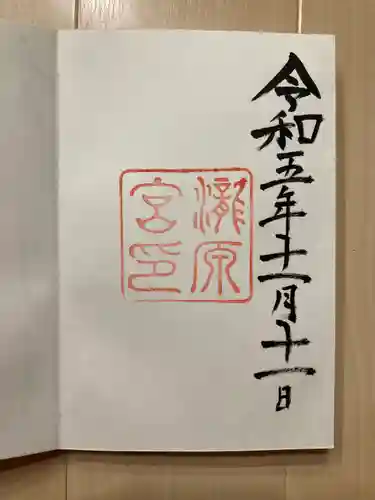 令和五年十一月十一日
瀧原
宮印